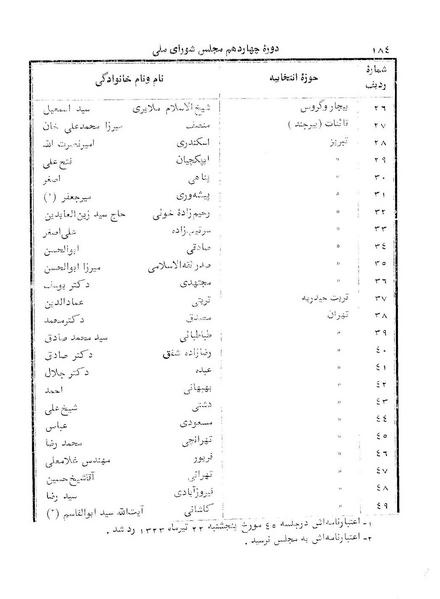 ۱۸٤ دورهٔ چهاردهم مجلس شورای ملی
شمارهٔ ردیف حوزهٔ انتخابیه نام ونام خانوادگی
۲٦ بیجار وگروس شیخ‌الاسلام ملایری سید اسمعیل
۲۷ قائنات (بیرجند) منصف میرزا محمدعلی خان
۲۸ تبریز اسکندری امیرنصرت الله
۲۹ " ایپکچیان فتح علی
۳۰ " پناهی اصغر
۳۱ " پیشه‌وری میرجعفر (۱)
۳۲ " رحیم‌زادهٔ خوئی حاج سید زین‌العابدین
۳۳ " سرتیپ‌زاده علی‌اصغر
۳٤ " صادقی ابوالحسن
۳۵ " صدرثقه‌الاسلامی میرزا ابوالحسن
۳٦ " مجتهدی دکتر یوسف
۳۷ تربت حیدریه تربتی عمادالدین
۳۸ تهران مصدق دکترمحمد
۳۹ " طباطبائی سید محمد صادق
٤۰ " رضازاده شفق دکتر صادق
٤۱ " عبده دکتر جلال
٤۲ " بهبهانی احمد
٤۳ " دشتی شیخ علی
٤٤ " مسعودی عباس
٤۵ " تهرانچی محمد رضا
٤٦ " فریور مهندس غلامعلی
٤۷ " تهرانی آقاشیخ‌حسین
٤۸ " فیروزآبادی سید رضا
٤۹ " کاشانی آیت‌الله سید ابوالقاسم (۲)
۱ـ اعتبارنامه‌اش درجلسه ٤۵ مورخ پنجشنبه ۲۲ تیرماه ۱۳۲۳ رد شد .
۲ـ اعتبارنامه‌اش به مجلس نرسید .